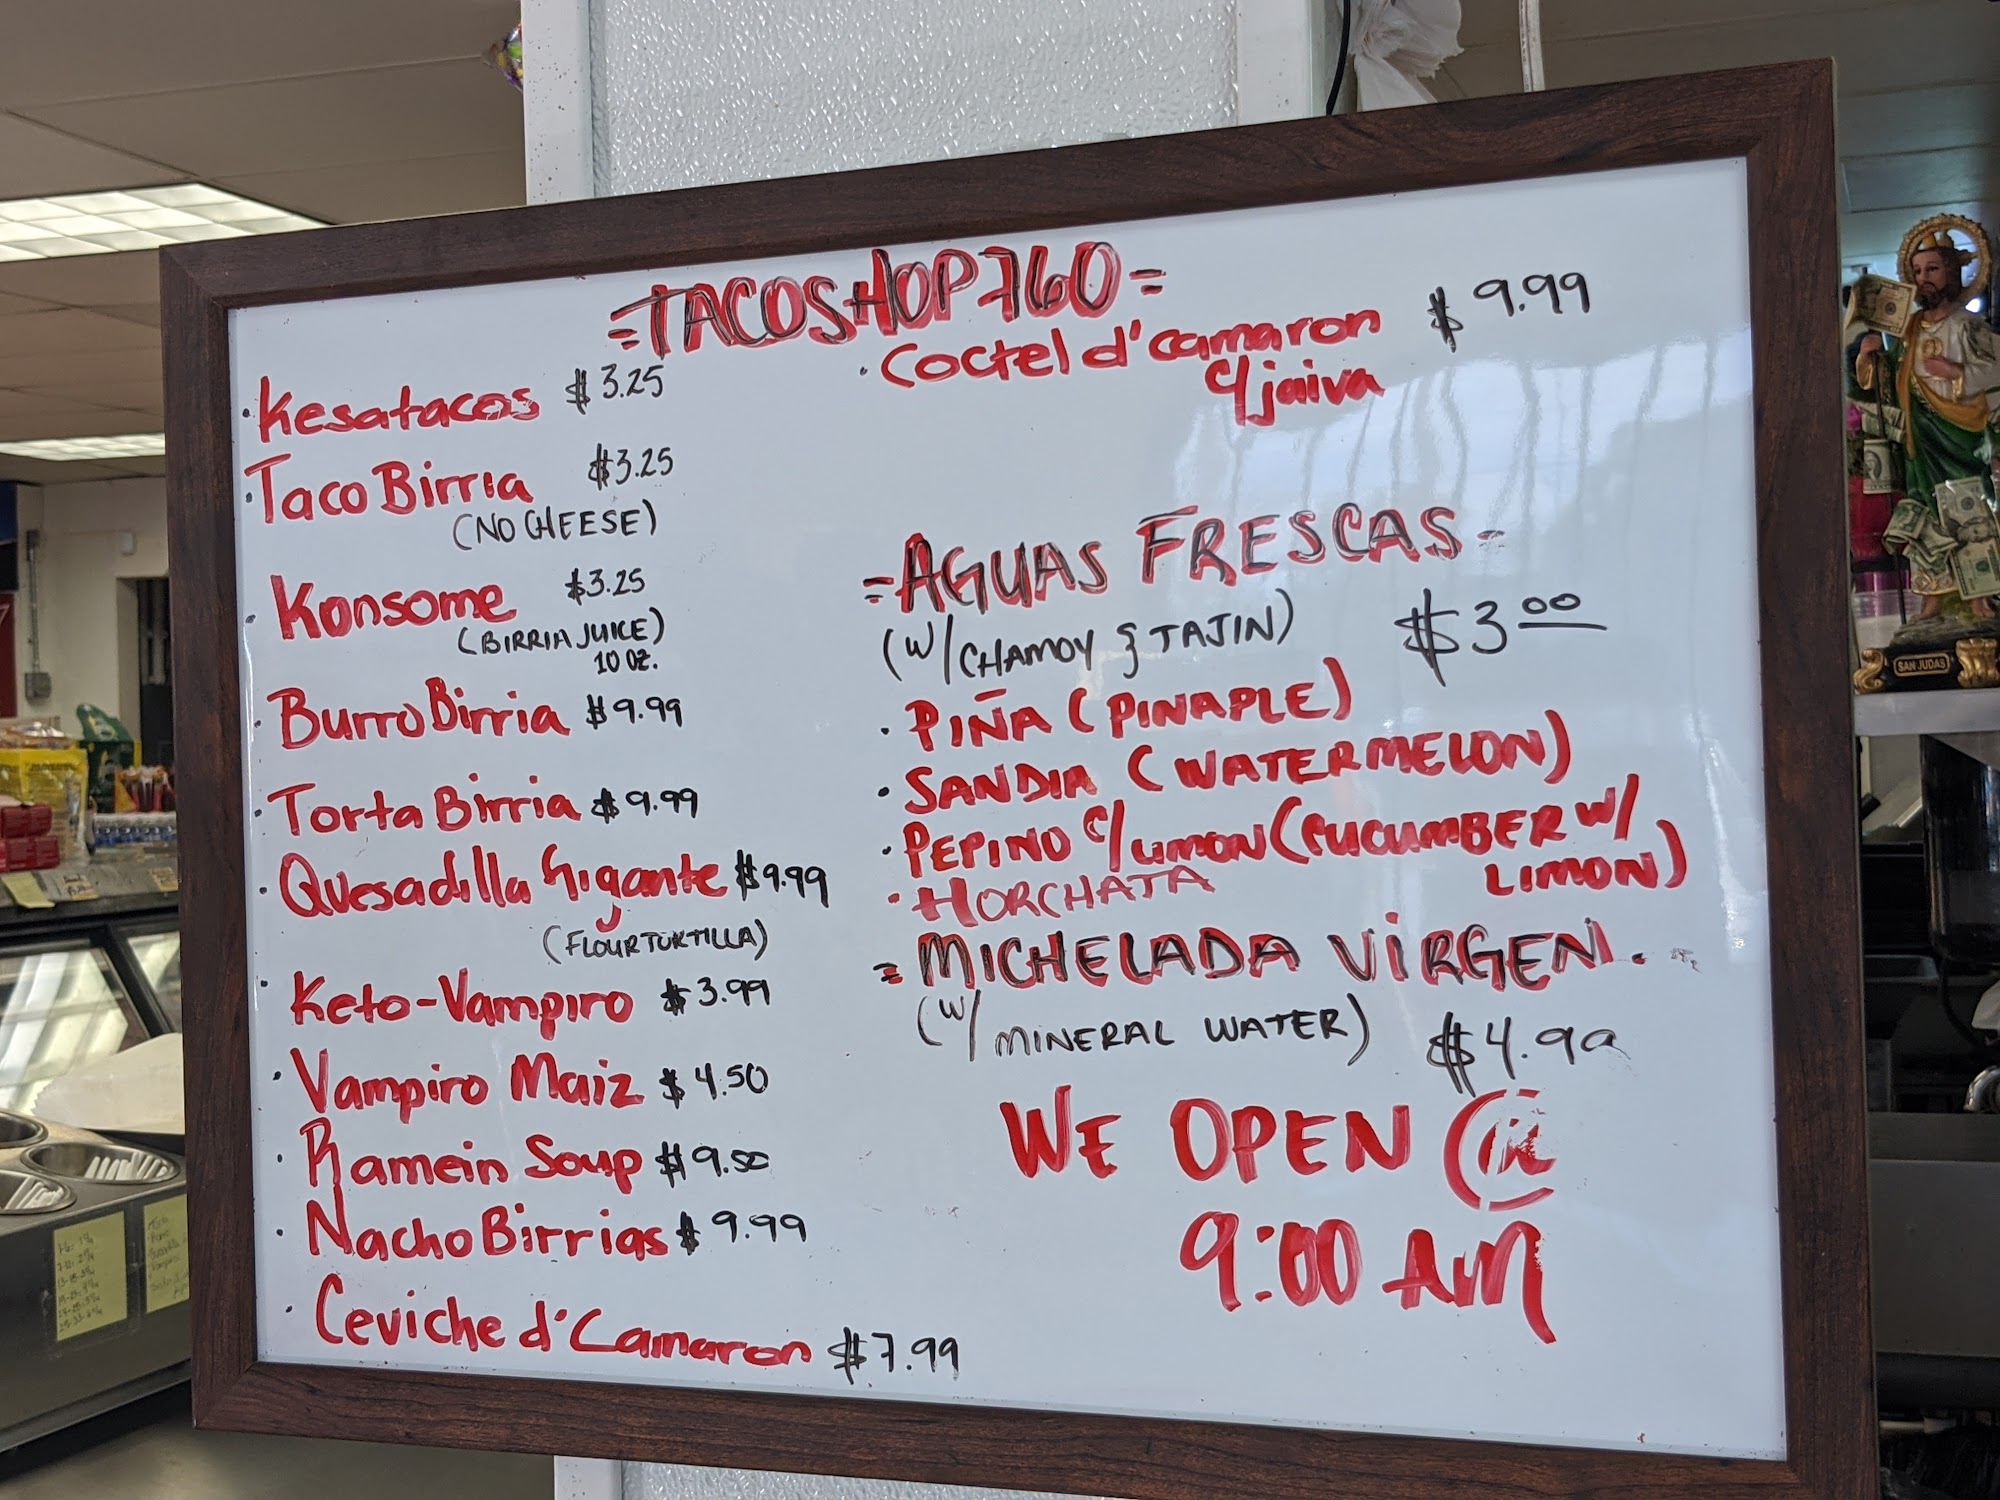 =TACOSHOP760=
· Kesatacos $3.25
· Taco Birria $3.25
(NO CHEESE)
· Konsome $3.25
(BIRRIA JUICE)
10 OZ.
· Burro Birria $9.99
· Torta Birria $9.99
· Quesadilla Gigante $9.99
(FLOUR TORTILLA)
· Keto-Vampiro $3.99
· Vampiro Maiz $4.50
· Ramein Soup $9.50
· Nacho Birrias $9.99
· Ceviche d'Camaron $7.99
· Coctel d'camaron $9.99
c/jaiva
=AGUAS FRESCAS=
(W/CHAMOY & TAJIN) $3.00
· PIÑA (PINAPLE)
· SANDIA (WATERMELON)
· PEPINO C/LIMON (CUCUMBER W/
LIMON)
· HORCHATA
=MICHELADA VIRGEN.
(W/MINERAL WATER) $4.99
WE OPEN @
9:00 AM
SAN JUDAS